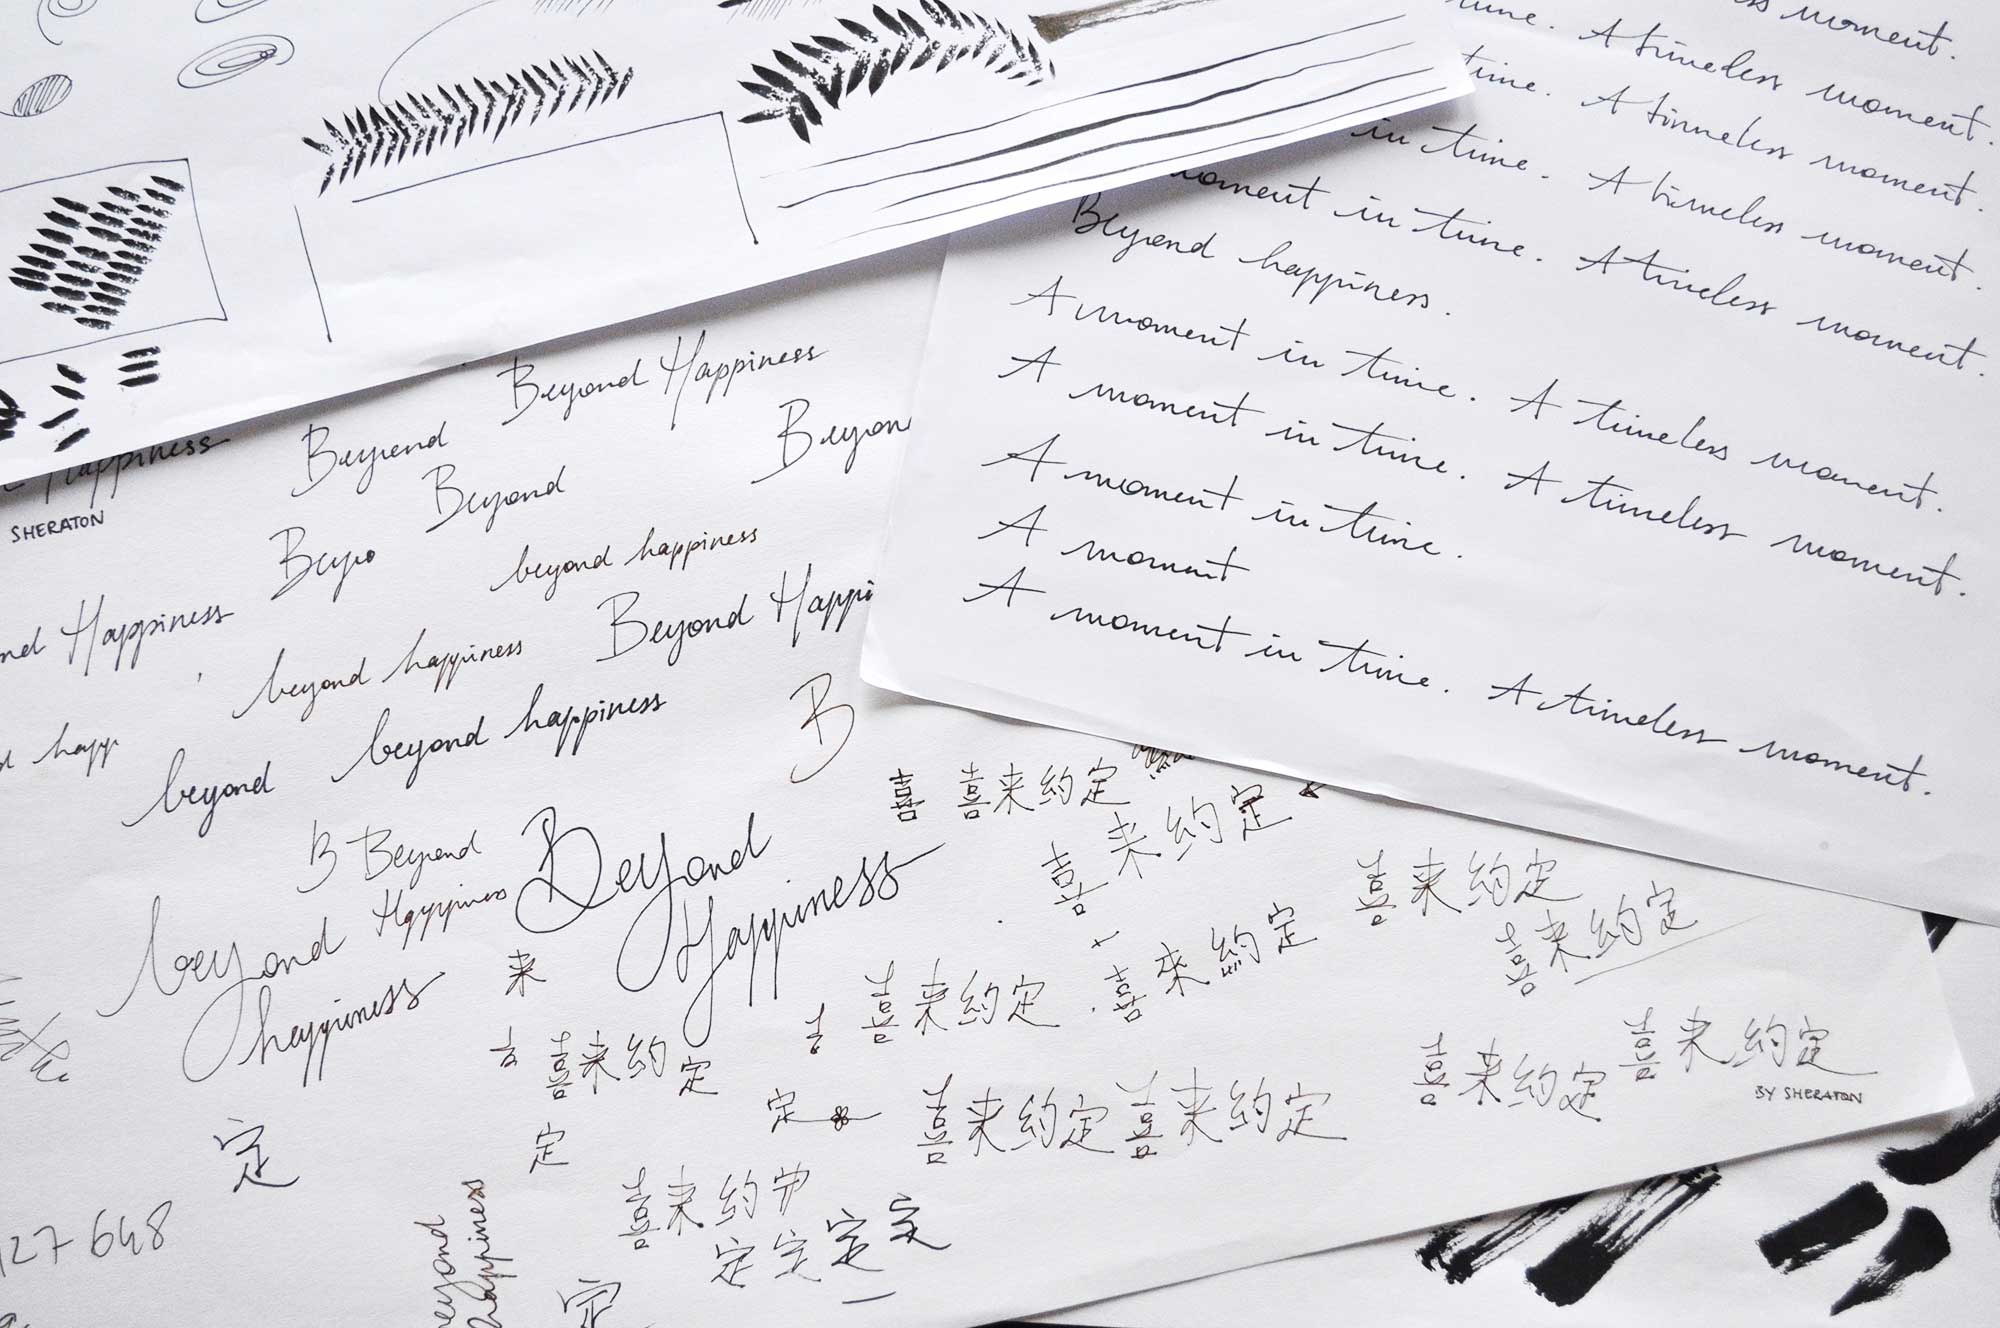 ss moment.
time. A timeless moment.
time. A timeless moment.
in time. A timeless moment.
moment in time. A timeless moment.
Beyond happiness.
A moment in time. A timeless moment.
A moment in time. A timeless moment.
A moment in time.
A moment
A moment in time. A timeless moment.
Happiness
SHERATON
Beyond Happiness
Beyond
Beyon
Beyond
Beyo
beyond happiness
nd Happiness
beyond happiness
Beyond Happi
d happ
beyond
beyond happiness
B
B Beyond
Happiness
Beyond
Happiness
beyond
happiness
喜 喜来约定
喜来约定
喜来约定
喜来约定
来
喜来约定
喜来约定
喜来约定
喜来约定
定
喜来约定
喜来约定
喜来约定
喜来约定
BY SHERATON
定
定
喜来约
定定定定
定
beyond
happiness
27648